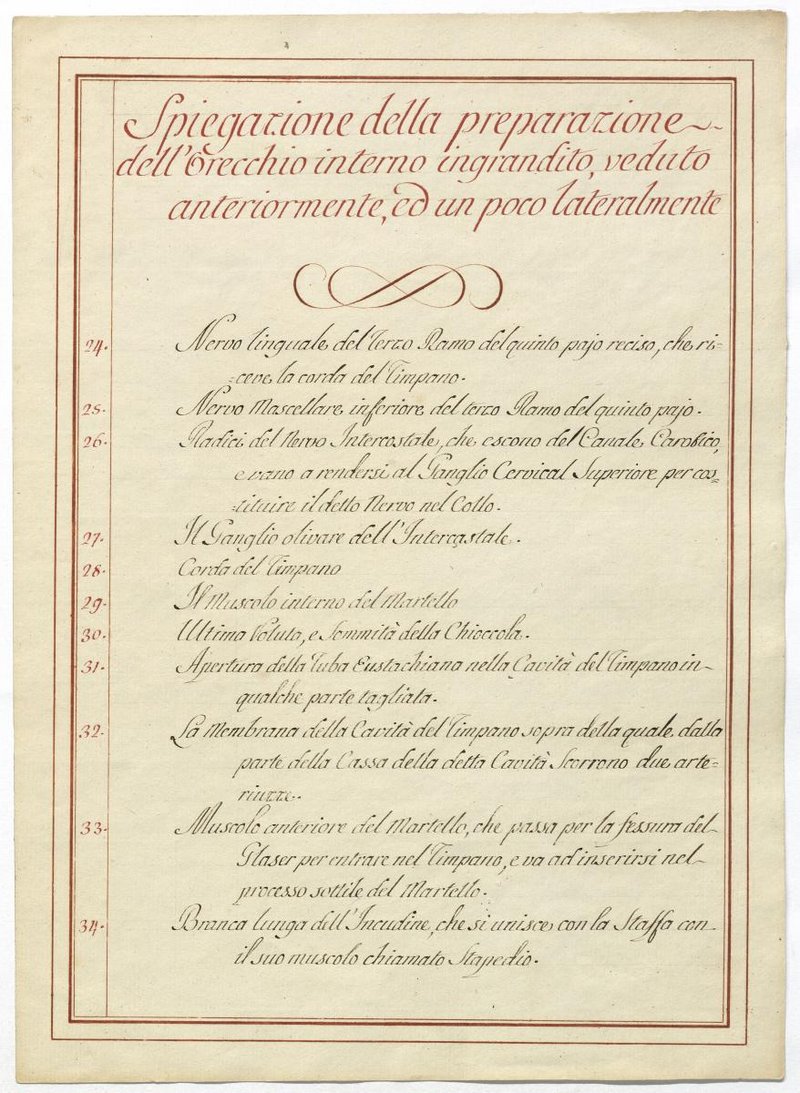 Spiegazione della preparazione
dell'Orecchio interno ingrandito, veduto
anteriormente, ed un poco lateralmente
24. Nervo linguale del terzo Ramo del quinto pajo reciso, che ri=
=ceve la corda del Timpano.
25. Nervo Mascellare inferiore del terzo Ramo del quinto pajo.
26. Radici del Nervo Intercostale, che escono del Canale Carotico,
e vano a rendersi al Ganglio Cervical Superiore per cos=
=tituire il detto Nervo nel Collo.
27. Il Ganglio olivare dell'Intercostale.
28. Corda del Timpano
29. Il Muscolo interno del Martello
30. Ultima Voluta, e Sommità della Chioccola.
31. Apertura della Tuba Eustachiana nella Cavità del Timpano in-
qualche parte tagliata.
32. La Membrana della Cavità del Timpano sopra della quale dalla
parte della Cassa della detta Cavità Scorrono due arte=
riuzze.
33. Muscolo anteriore del Martello, che passa per la fessura del
Glaser per entrare nel Timpano, e va ad inserirsi nel
processo sottile del Martello.
34. Branca lunga dell'Incudine, che si unisce con la Staffa con
il suo muscolo chiamato Stapedio.